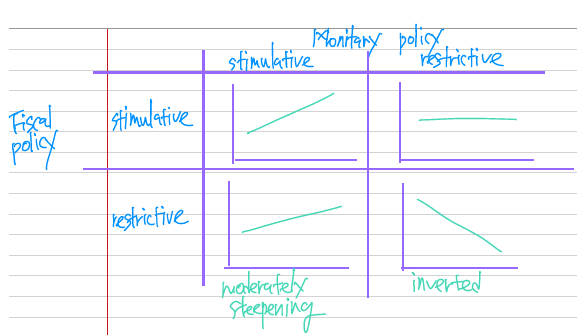 Monitary policy
stimulative restrictive
Fiscal
policy
stimulative
restrictive
moderately
steepening
inverted